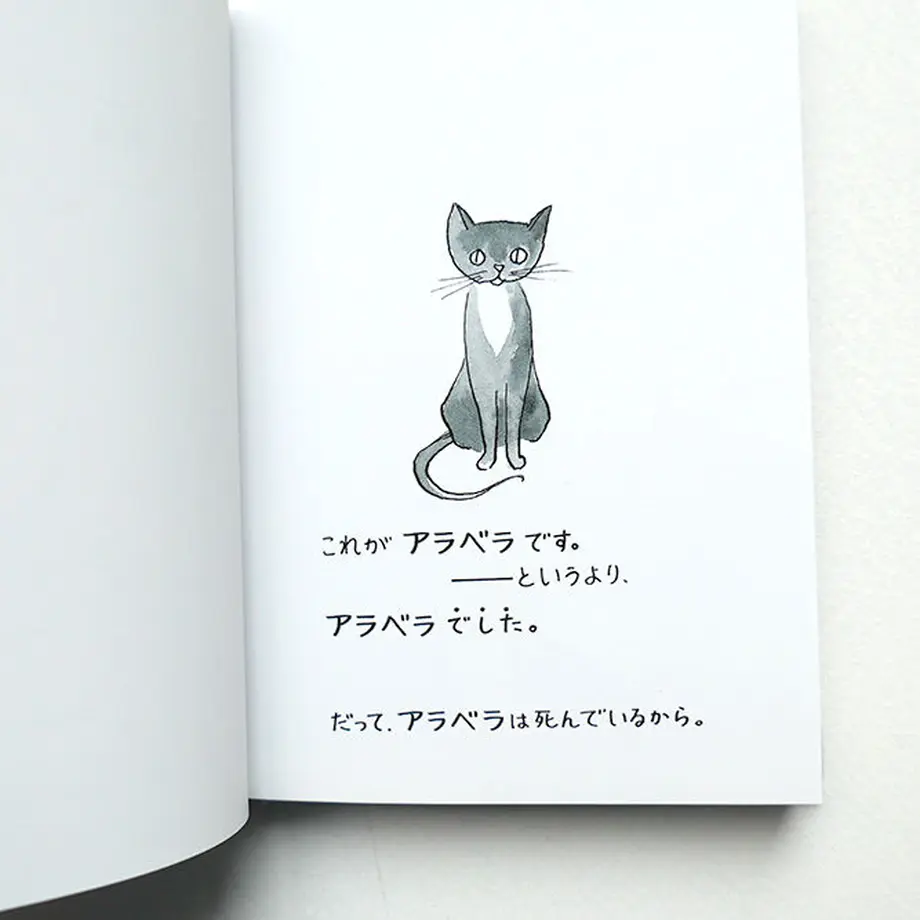 これが アラベラ です。
――というより、
アラベラ でした。
だって、アラベラは死んでいるから。